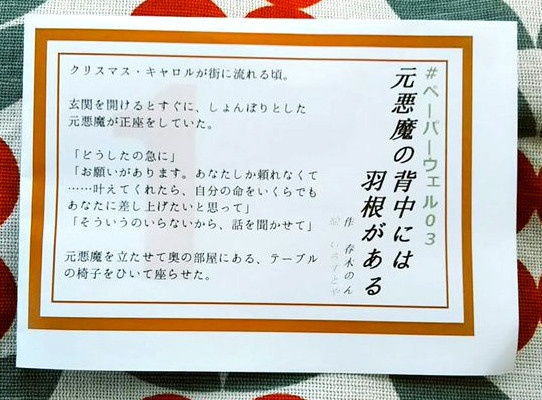 #ペーパーウェル03
元悪魔の背中には
羽根がある
作 春木のん
クリスマス・キャロルが街に流れる頃。
玄関を開けるとすぐに、しょんぼりとした
元悪魔が正座をしていた。
「どうしたの急に」
「お願いがあります。あなたしか頼れなくて
……叶えてくれたら、自分の命をいくらでも
あなたに差し上げたいと思って」
「そういうのいらないから、話を聞かせて」
元悪魔を立たせて奥の部屋にある、テーブル
の椅子をひいて座らせた。